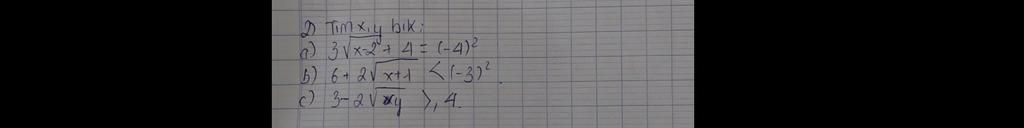 2) Tìm x, y bik:
a) 3√x-2 + 4 = (-4)²
b) 6 + 2√x+1 < (-3)².
c) 3 - 2√xy ≥ 4.